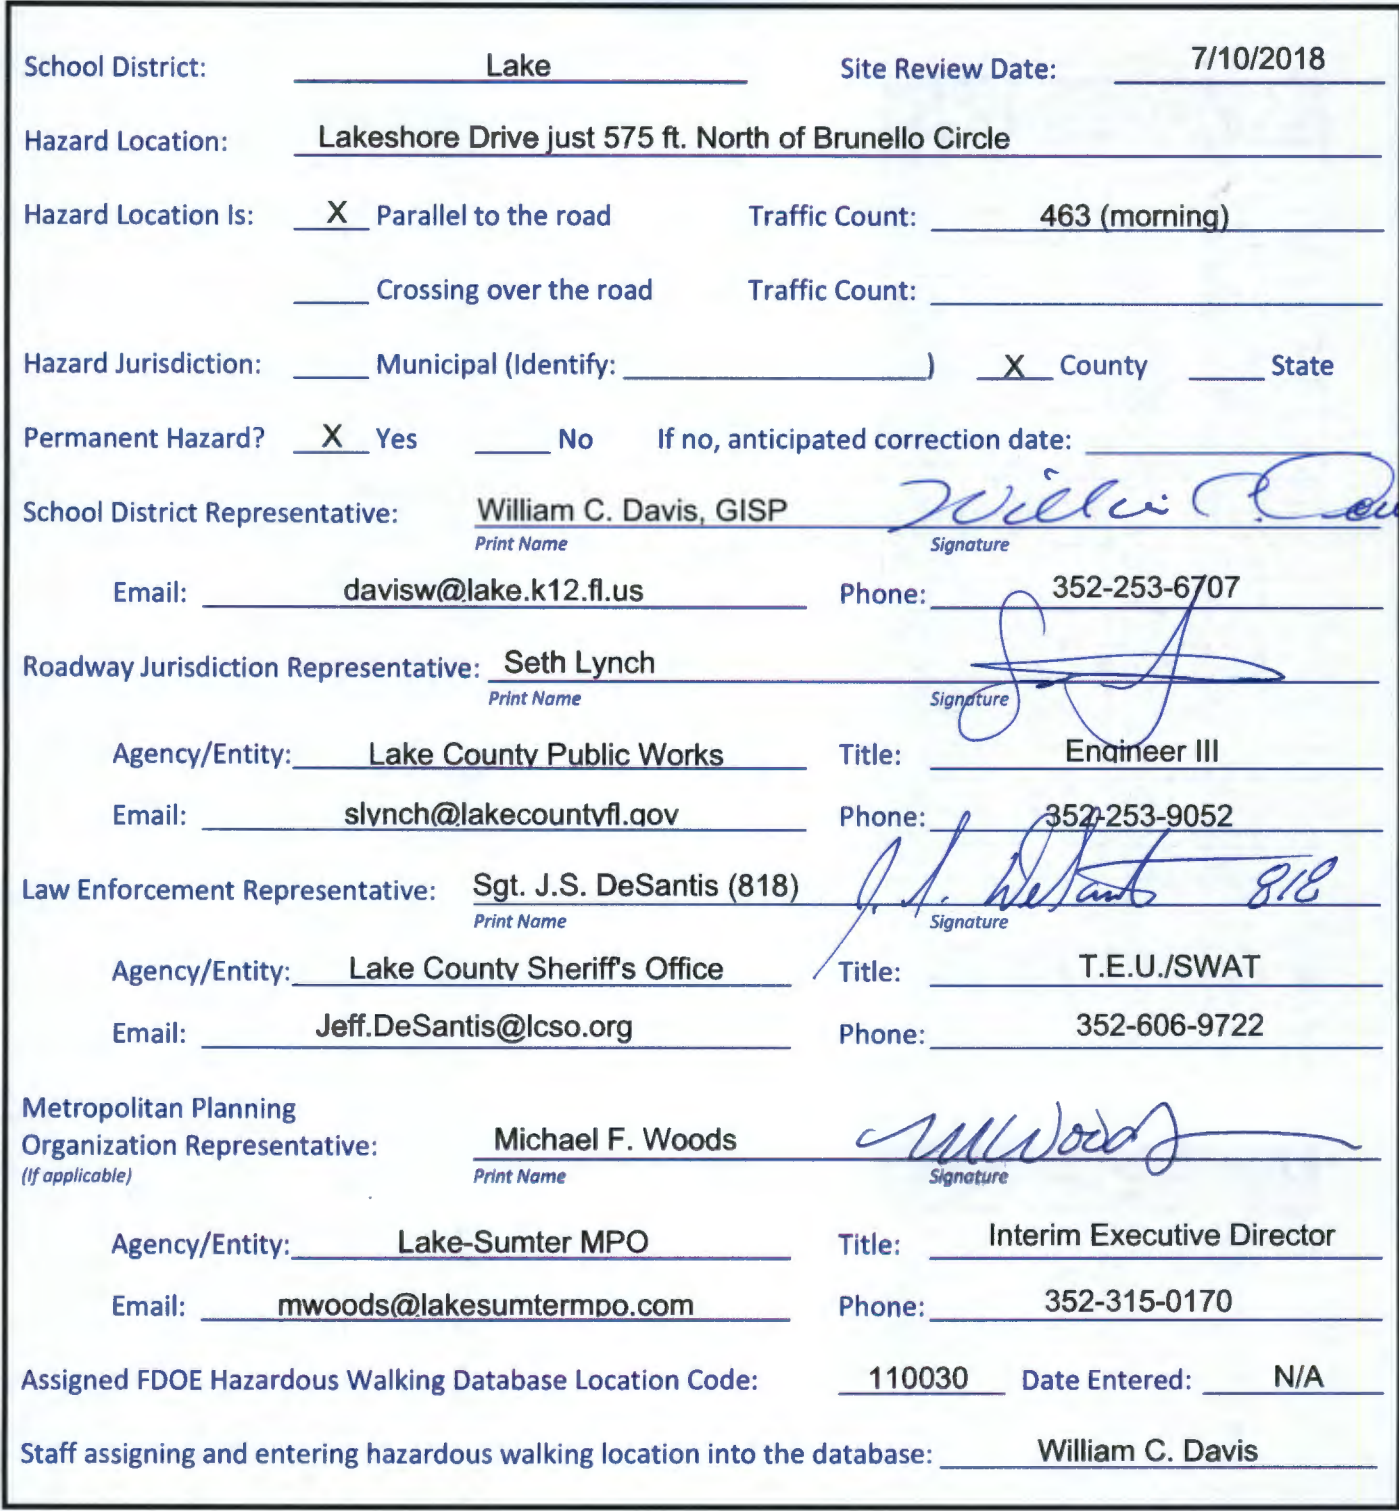 School District: Lake Site Review Date: 7/10/2018
Hazard Location: Lakeshore Drive just 575 ft. North of Brunello Circle
Hazard Location Is: X Parallel to the road Traffic Count: 463 (morning)
Crossing over the road Traffic Count:
Hazard Jurisdiction: Municipal (Identify: ) X County State
Permanent Hazard? X Yes No If no, anticipated correction date:
School District Representative: William C. Davis, GISP
Print Name Signature
Email: davisw@lake.k12.fl.us Phone: 352-253-6707
Roadway Jurisdiction Representative: Seth Lynch
Print Name Signature
Agency/Entity: Lake County Public Works Title: Engineer III
Email: slynch@lakecountyfl.gov Phone: 352-253-9052
Law Enforcement Representative: Sgt. J.S. DeSantis (818) J. S. DeSantis 818
Print Name Signature
Agency/Entity: Lake County Sheriff's Office Title: T.E.U./SWAT
Email: Jeff.DeSantis@lcso.org Phone: 352-606-9722
Metropolitan Planning
Organization Representative: Michael F. Woods MWoods
(If applicable) Print Name Signature
Agency/Entity: Lake-Sumter MPO Title: Interim Executive Director
Email: mwoods@lakesumtermpo.com Phone: 352-315-0170
Assigned FDOE Hazardous Walking Database Location Code: 110030 Date Entered: N/A
Staff assigning and entering hazardous walking location into the database: William C. Davis